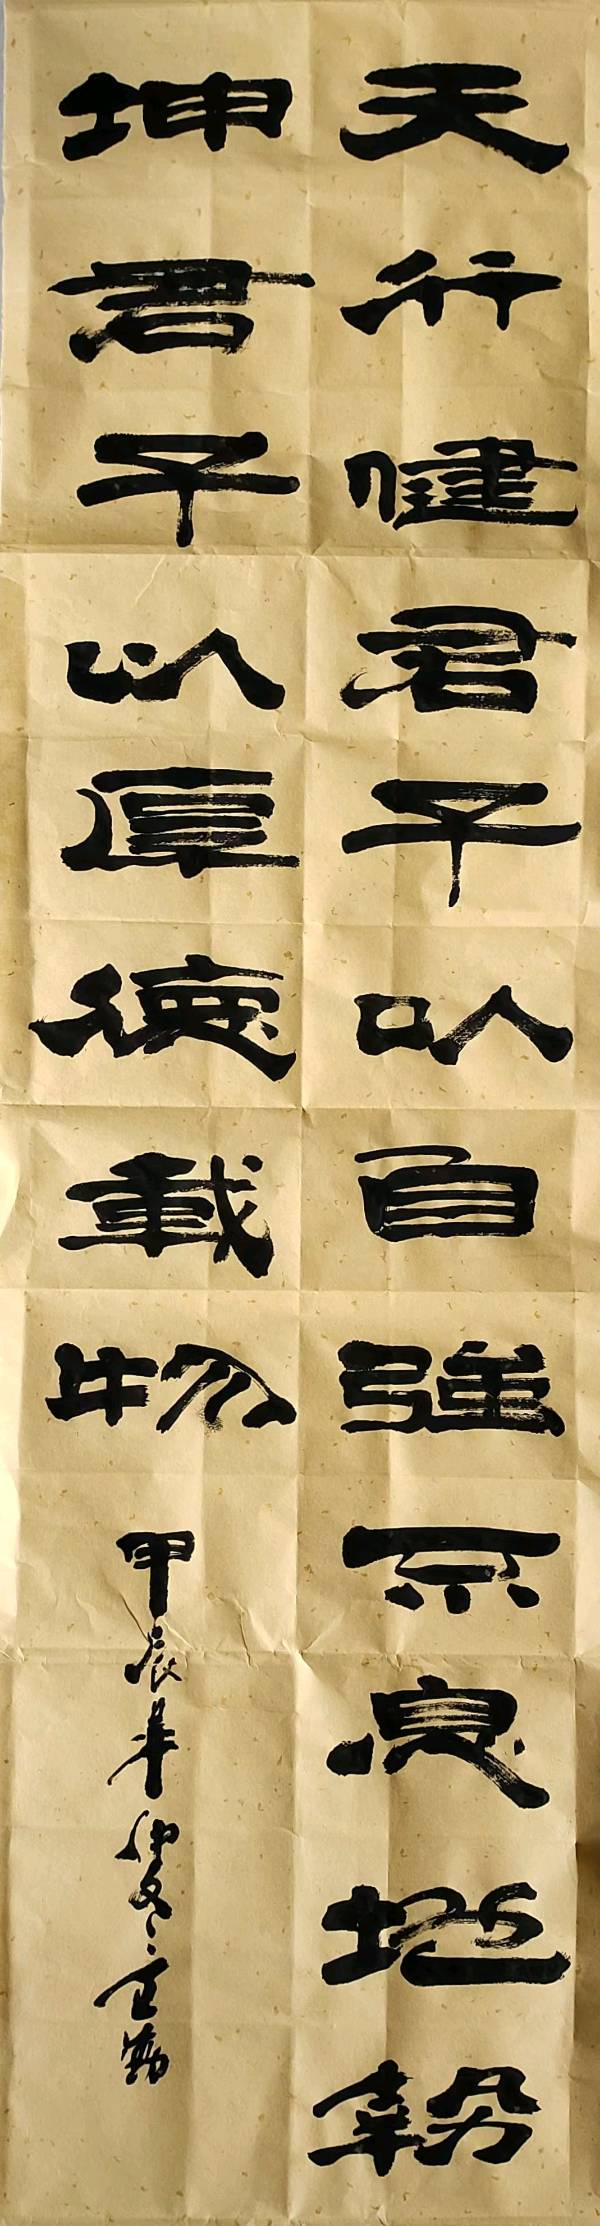 天行健君子以自强不息地势
坤君子以厚德载物
甲辰年仲冬